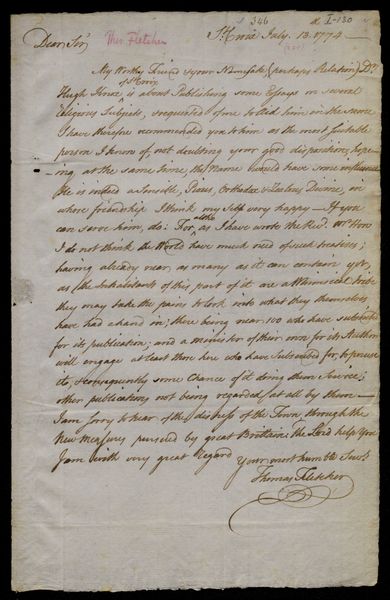 346
I-130
Thos. Fletcher
St. Croix July. 13. 1774
Dear Sir
My Worthy Friend & your Namesake (perhaps Relation) Dr.
Hugh Knox of St Croix is about Publishing some Essays on several
religious Subjects, requested of me to Aid him in the same
I have therefore recommended you to him as the most suitable
person I know of, not doubting your good disposition, hope-
ing at the same time, the Name would have some influence
He is indeed a Sensible, Pious, Orthodox & Zealous Divine, in
whose friendship I think my self very happy — If you
can serve him, do: For, altho as I have wrote the Revd. Mr
I do not think the World have much need of such treatises;
having already near, as many as it can contain yet,
as the Inhabitants of this part of it are a Whimsical tribe
they may take the pains to look into what they themselves
have had a hand in; there being near 100 who have subscribed
for its publication; and a minister of their own for its Author
will engage at least those here who have Subscribed for to peruse
it, & consequently some Chance of it doing them Service;
other publications not being regarded (at all) by them —
I am sorry to hear of the distress of the Town, through the
New Measures pursued by great Brittain; the Lord help You
I am with very great Regard
Your most humble Servt.
Thomas Fletcher